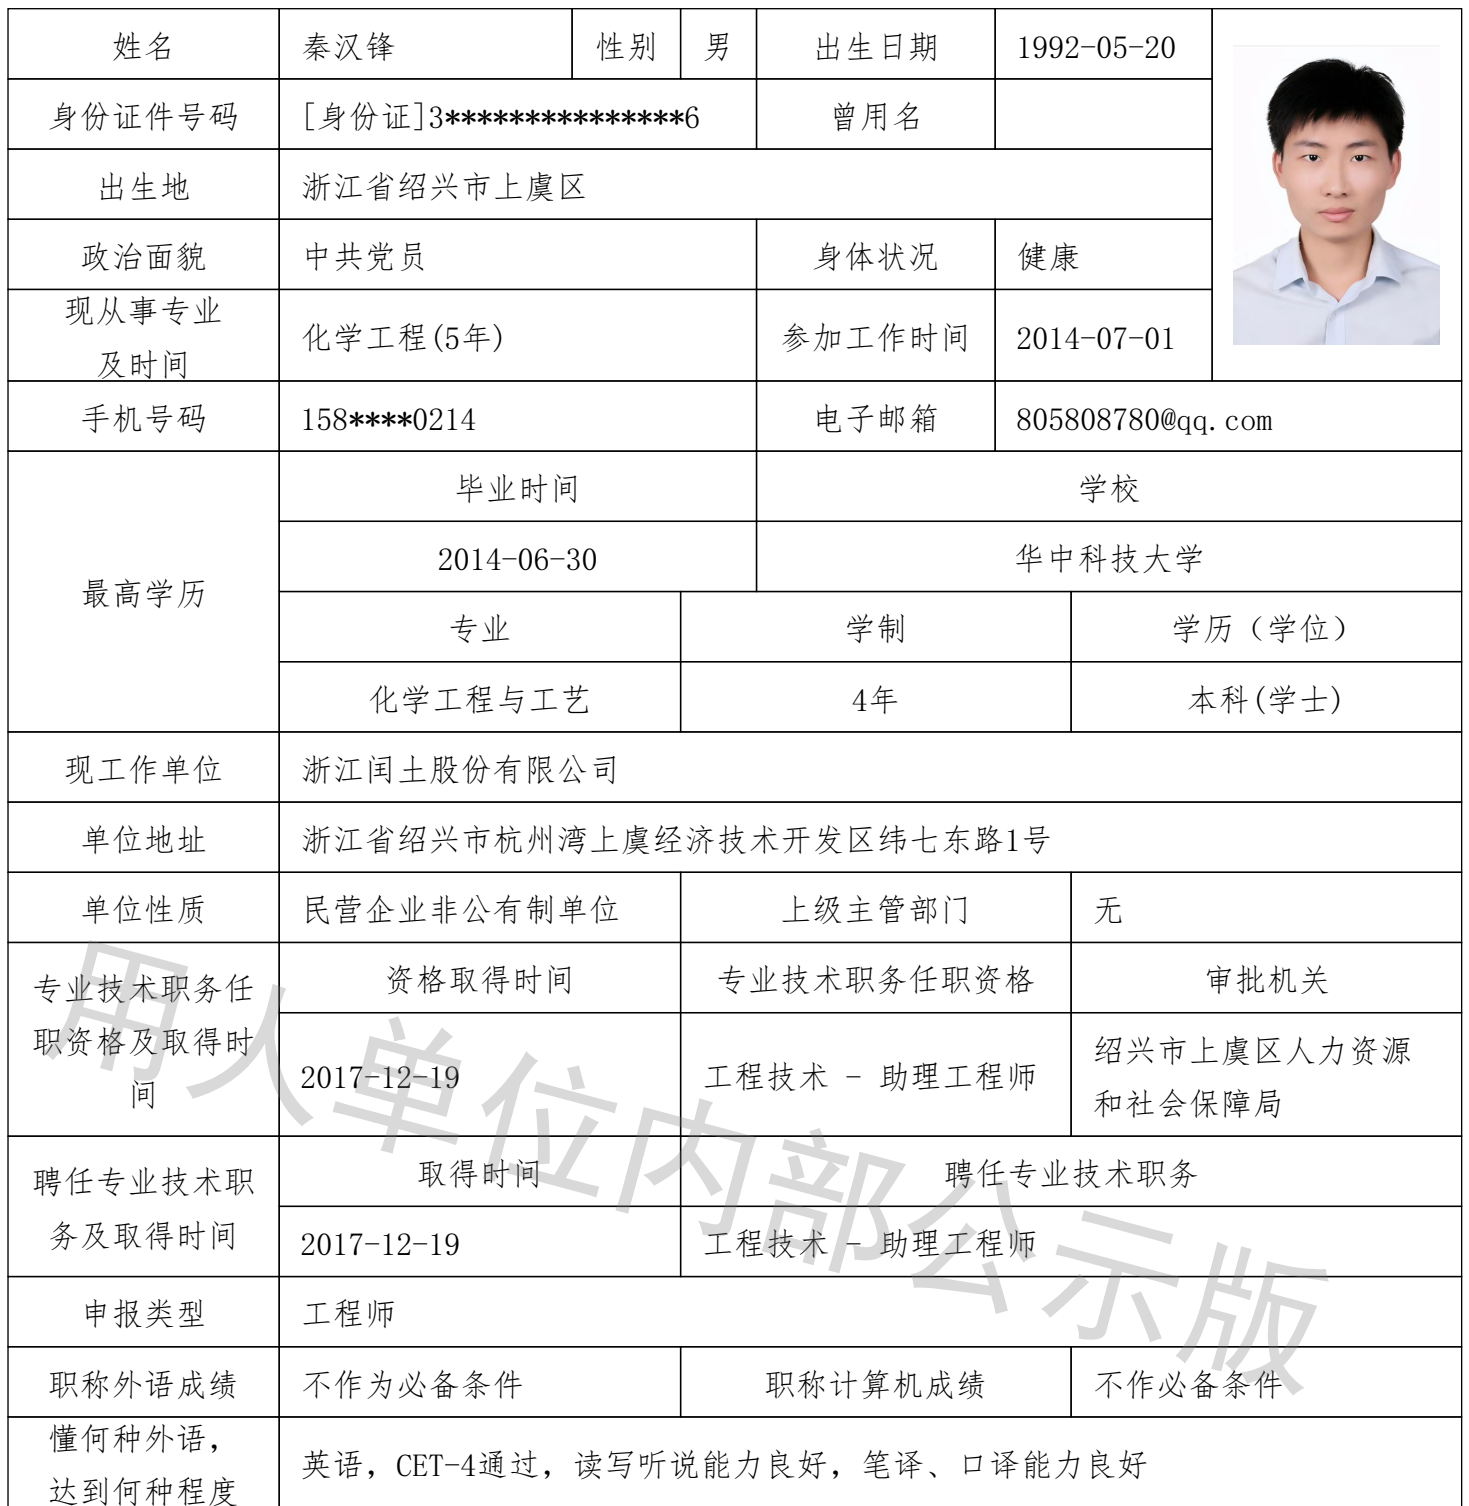 姓名 秦汉锋 性别 男 出生日期 1992-05-20
身份证件号码 [身份证]3***************6 曾用名
出生地 浙江省绍兴市上虞区
政治面貌 中共党员 身体状况 健康
现从事专业
及时间 化学工程(5年) 参加工作时间 2014-07-01
手机号码 158****0214 电子邮箱 805808780@qq.com
最高学历 毕业时间 学校
2014-06-30 华中科技大学
专业 学制 学历（学位）
化学工程与工艺 4年 本科(学士)
现工作单位 浙江闰土股份有限公司
单位地址 浙江省绍兴市杭州湾上虞经济技术开发区纬七东路1号
单位性质 民营企业非公有制单位 上级主管部门 无
专业技术职务任
职资格及取得时
间
资格取得时间 专业技术职务任职资格 审批机关
2017-12-19 工程技术 - 助理工程师 绍兴市上虞区人力资源
和社会保障局
聘任专业技术职
务及取得时间
取得时间 聘任专业技术职务
2017-12-19 工程技术 - 助理工程师
申报类型 工程师
职称外语成绩 不作为必备条件 职称计算机成绩 不作必备条件
懂何种外语，
达到何种程度 英语，CET-4通过，读写听说能力良好，笔译、口译能力良好
用人单位内部公示版